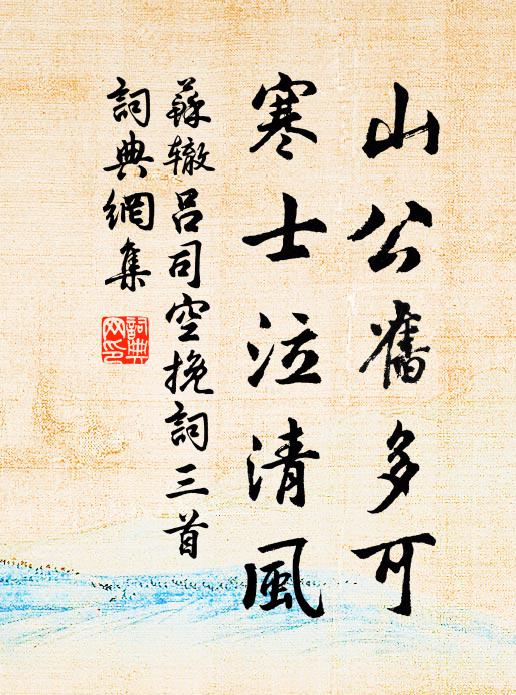 山公舊多可
寒士泣清風
蘇辙呂司空挽詞三首
詞典網集
詞典網印